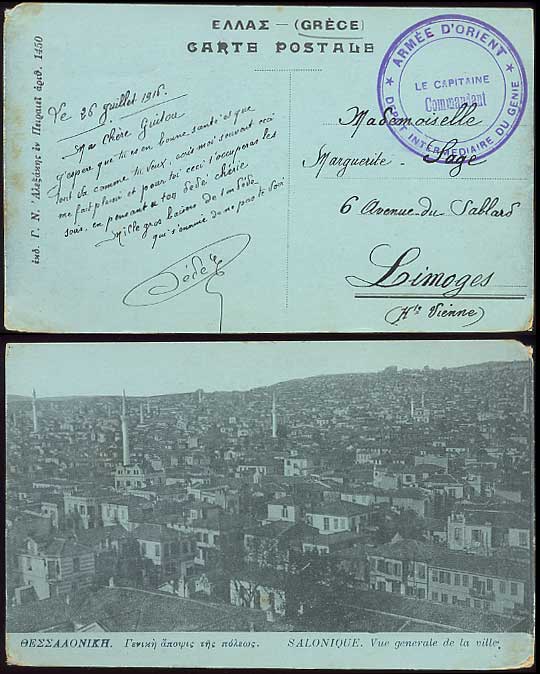 ΕΛΛΑΣ — (GRÈCE)
CARTE POSTALE
ἐκδ. Γ. Ν. Ἀλεξάκης ἐν Πειραιεῖ ἀριθ. 1450
Le 26 juillet 1916.
Ma Chère Guitou
J'espère que tu es en bonne santé et que
tout va comme tu veux. écris moi souvent ceci
me fait plaisir et pour toi ceci t'occuperas les
soirs en pensant à ton Dédé chérie
Mille gros baisers de ton Dédé
qui s'ennuie de ne pas te voir
Dédé
★ ARMÉE D'ORIENT ★
LE CAPITAINE
Commandant
DÉPOT INTERMÉDIAIRE DU GÉNIE
Mademoiselle
Marguerite Sage
6 Avenue du Sablard
Limoges
(Hte Vienne)
ΘΕΣΣΑΛΟΝΙΚΗ. Γενικὴ ἄποψις τῆς πόλεως. SALONIQUE. Vue generale de la ville.